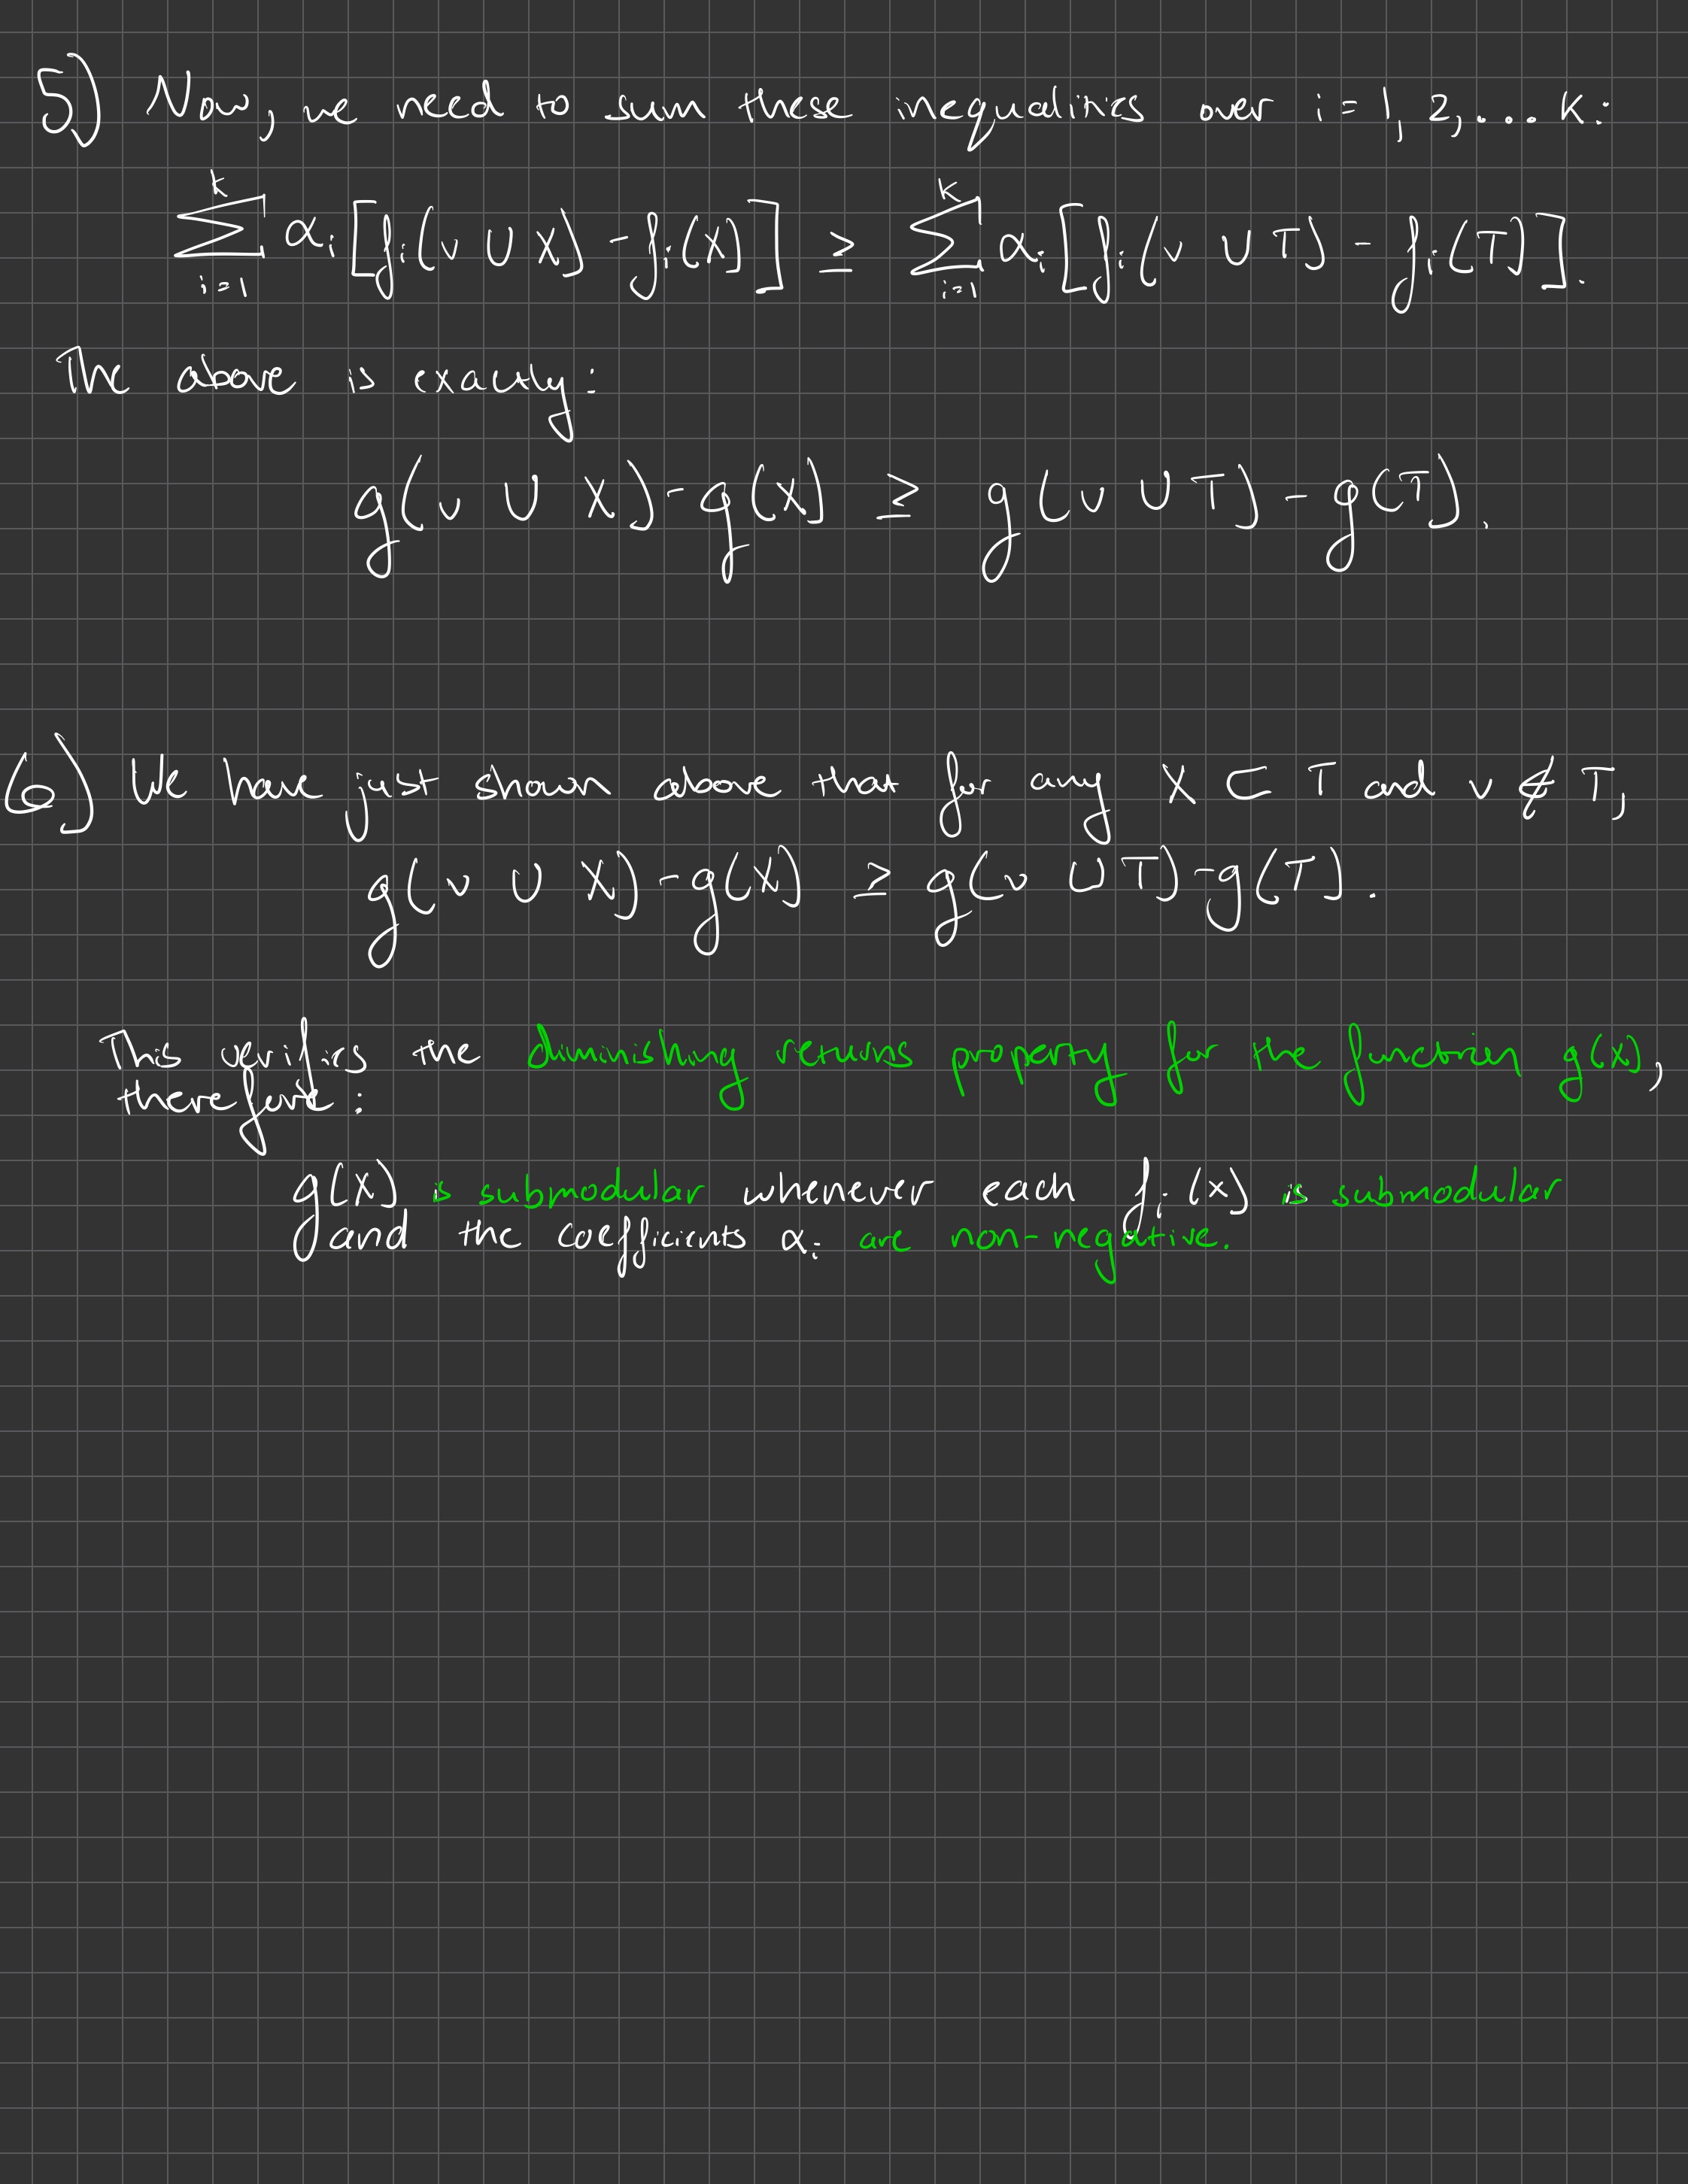 5) Now, we need to sum these inequalities over i = 1, 2, ... k:
∑_{i=1}^{k} α_i [f_i(v ∪ X) - f_i(X)] ≥ ∑_{i=1}^{k} α_i [f_i(v ∪ T) - f_i(T)].
The above is exactly:
g(v ∪ X) - g(X) ≥ g(v ∪ T) - g(T).
6) We have just shown above that for any X ⊂ T and v ∉ T,
g(v ∪ X) - g(X) ≥ g(v ∪ T) - g(T).
This verifies the diminishing returns property for the function g(x),
therefore:
g(X) is submodular whenever each f_i(x) is submodular
and the coefficients α_i are non-negative.